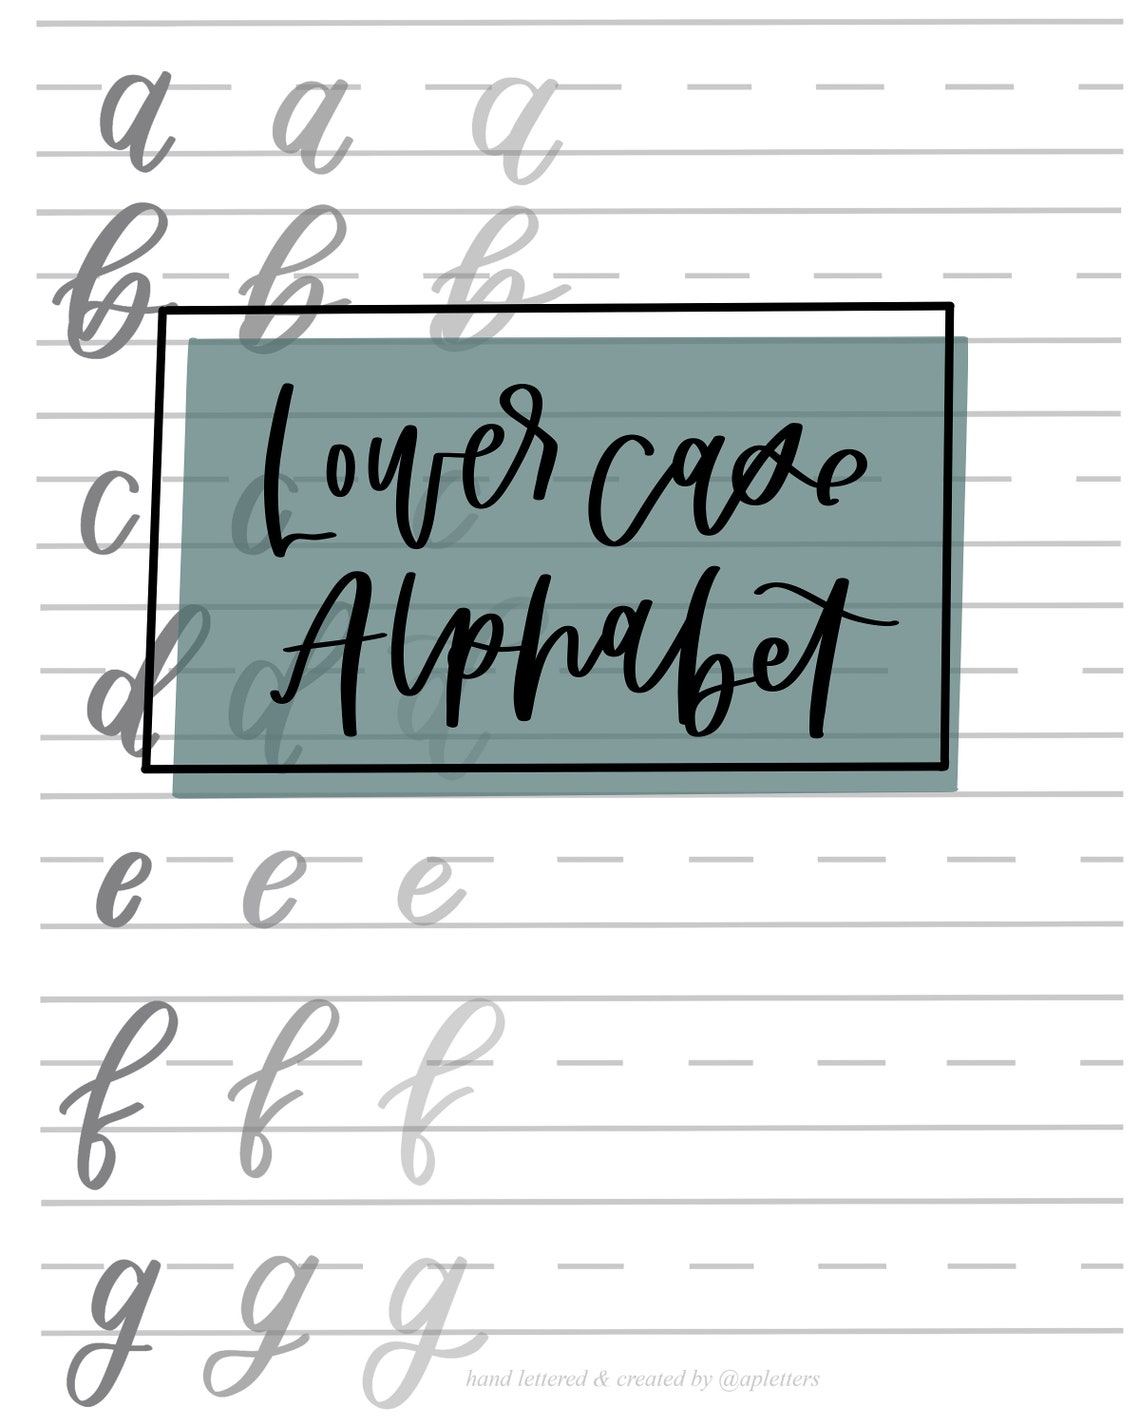 a a a
b b b
Lower case
c c c
Alphabet
d d d
e e e
f f f
g g g
hand lettered & created by @apletters